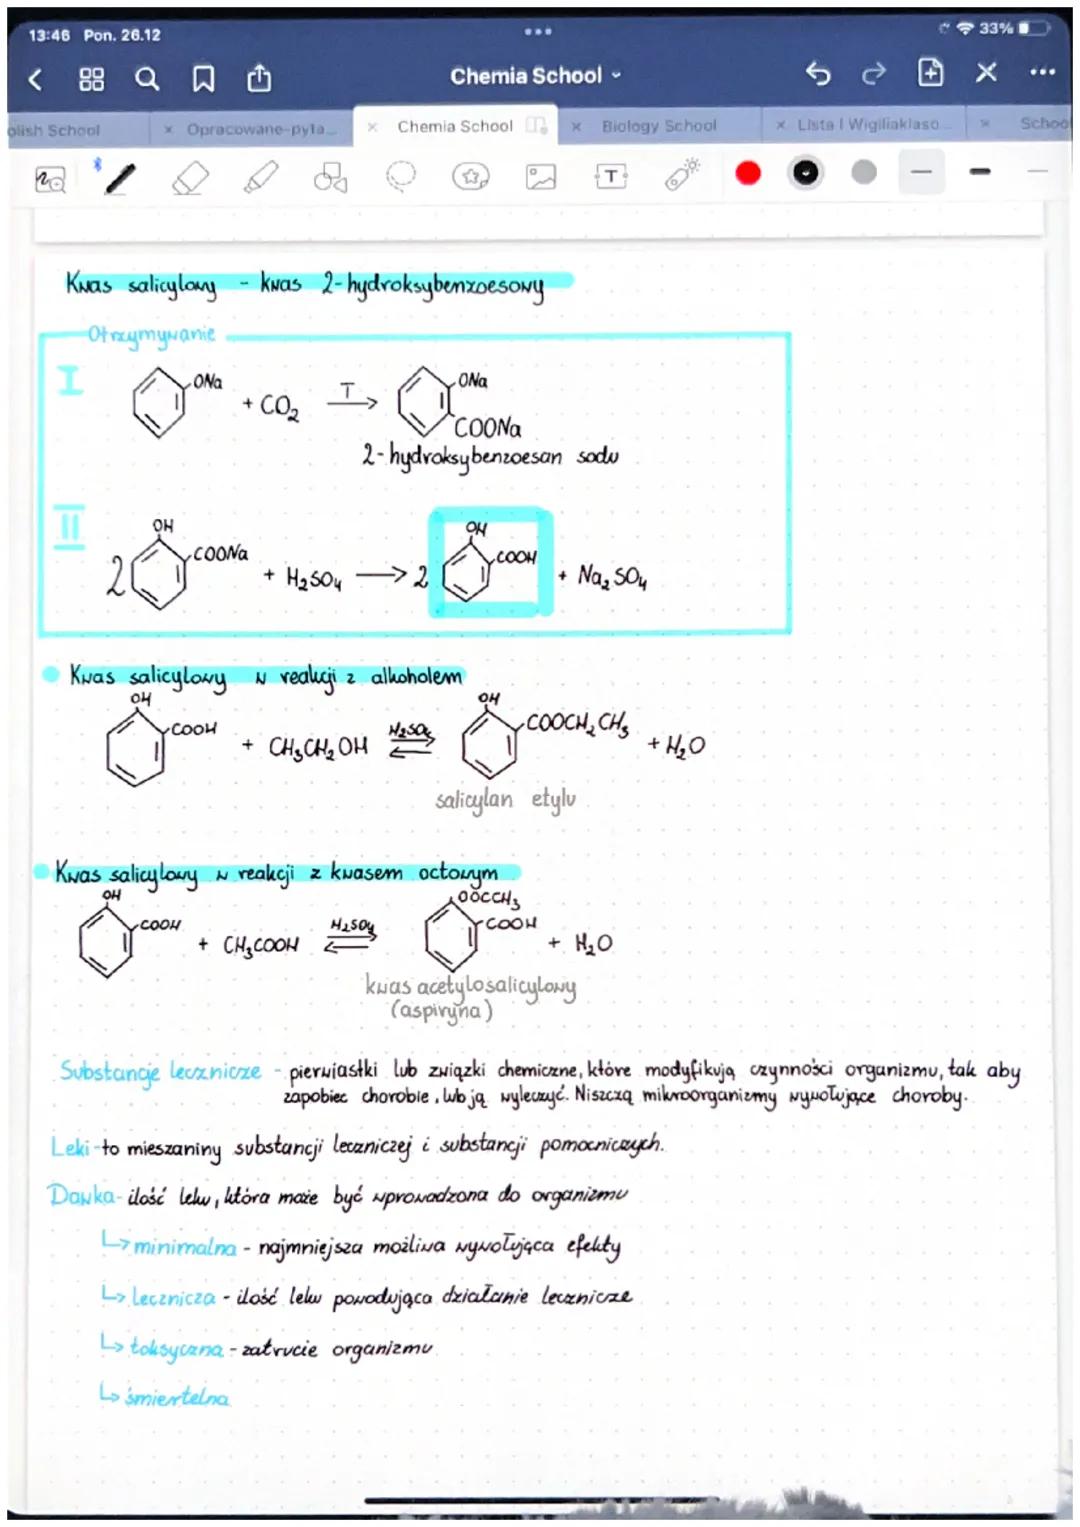 13:46 Pon. 26.12
33%
Chemia School
olish School
× Opracowane-pyta...
× Chemia School
× Biology School
× Lista I Wigiliaklaso...
× School
T
Kwas salicylowy - kwas 2-hydroksybenzoesowy
Otrzymywanie
I
ONa + CO₂ T→ ONa
COONa
2-hydroksybenzoesan sodu
II
OH OH
2 COONa + H₂SO₄ → 2 COOH + Na₂SO₄
Kwas salicylowy w reakcji z alkoholem
OH OH
COOH + CH₃CH₂OH H₂SO₄ ⇌ COOCH₂CH₃ + H₂O
salicylan etylu
Kwas salicylowy w reakcji z kwasem octowym
OH OOCCH₃
COOH + CH₃COOH H₂SO₄ ⇌ COOH + H₂O
kwas acetylosalicylowy
(aspiryna)
Substancje lecznicze - pierwiastki lub związki chemiczne, które modyfikują czynności organizmu, tak aby
zapobiec chorobie, lub ją wyleczyć. Niszczą mikroorganizmy wywołujące choroby.
Leki - to mieszaniny substancji leczniczej i substancji pomocniczych.
Dawka - ilość leku, która może być wprowadzona do organizmu
↳ minimalna - najmniejsza możliwa wywołująca efekty
↳ lecznicza - ilość leku powodująca działanie lecznicze
↳ toksyczna - zatrucie organizmu
↳ śmiertelna